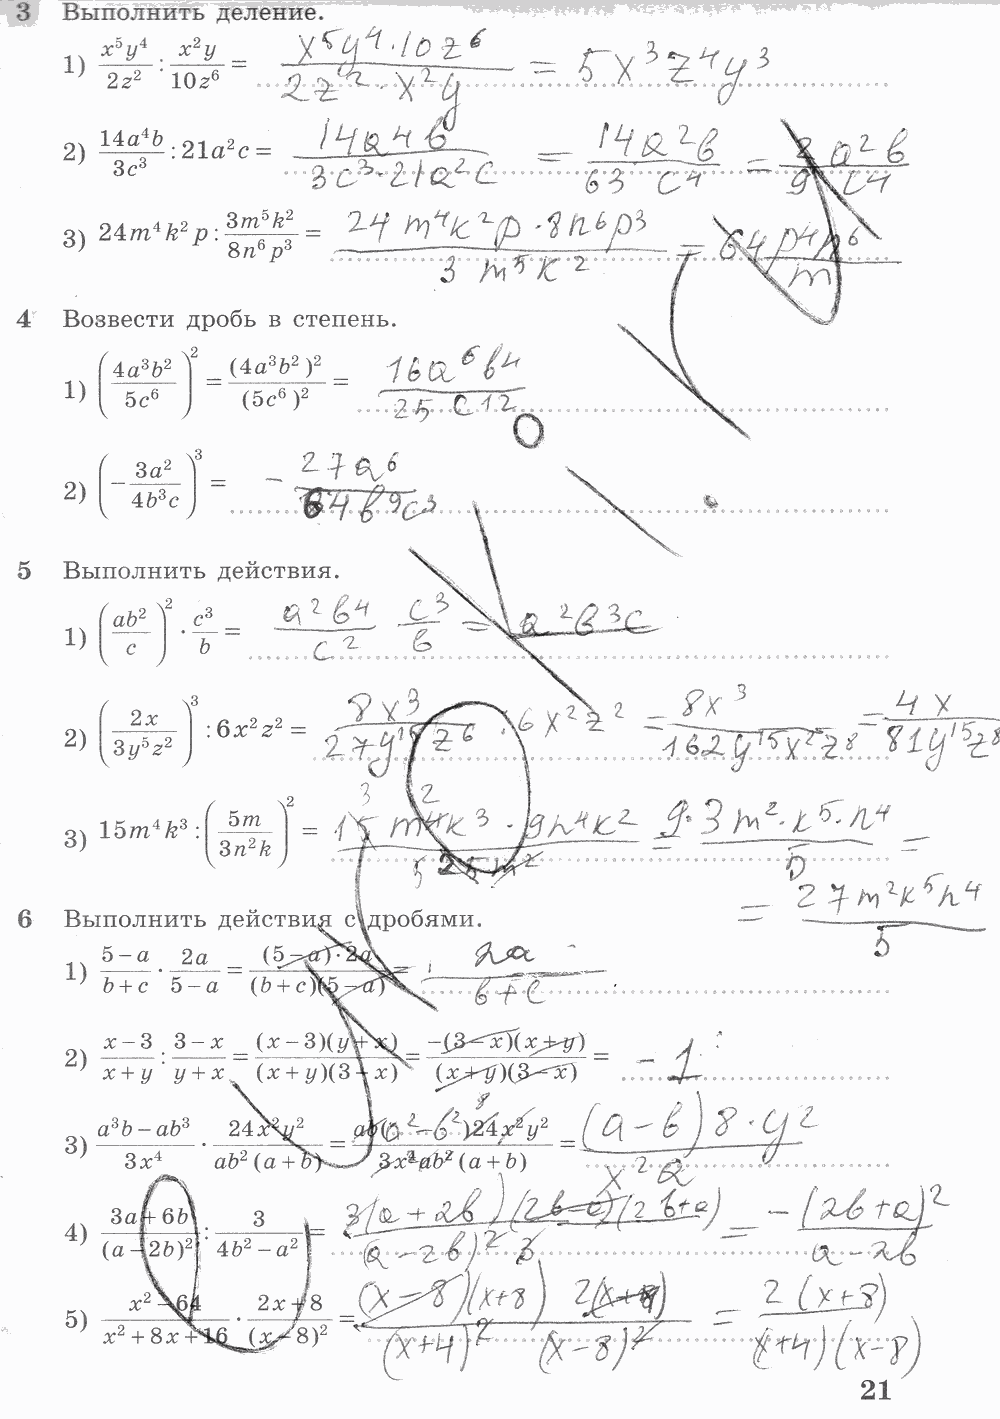 3 Выполнить деление.
1) x⁵y⁴/2z² : x²y/10z⁶ = x⁵y⁴·10z⁶/2z²·x²y = 5x³z⁴y³
2) 14a⁴b/3c³ : 21a²c = 14a4b/3c³·21a²c = 14a²b/63 c4 = 2 a²b/9 c4
3) 24m⁴k²p : 3m⁵k²/8n⁶p³ = 24 m⁴k²p·8n6p3/3 m⁵k² = 64p⁴n⁶/m
4 Возвести дробь в степень.
1) (4a³b²/5c⁶)² = (4a³b²)²/(5c⁶)² = 16a⁶b4/25 c12
2) (−3a²/4b³c)³ = − 27a6/64b9c3
5 Выполнить действия.
1) (ab²/c)² · c³/b = a²b4/c² c³/b = a²b³c
2) (2x/3y⁵z²)³ : 6x²z² = 8x³/27y¹⁵z⁶ : 6x²z² = 8x³/162y¹⁵x²z⁸ = 4x/81y¹⁵z⁸
3) 15m⁴k³ : (5m/3n²k)² = 15 m⁴k³·9n⁴k²/25m² = 9·3m²·k⁵·n⁴/5 =
= 27m²k⁵n⁴/5
6 Выполнить действия с дробями.
1) 5−a/b+c · 2a/5−a = (5−a)·2a/(b+c)(5−a) = 2a/b+c
2) x−3/x+y : 3−x/y+x = (x−3)(y+x)/(x+y)(3−x) = −(3−x)(x+y)/(x+y)(3−x) = −1
3) a³b−ab³/3x⁴ · 24x²y²/ab²(a+b) = ab(a²−b²)24x²y²/3x⁴ab²(a+b) = (a−b)8·y²/x²a
4) 3a+6b/(a−2b)² : 3/4b²−a² = 3(a+2b)(2b−a)(2b+a)/(a−2b)² 3 = −(2b+a)²/a−2b
5) x²−64/x²+8x+16 · 2x+8/(x−8)² = (x−8)(x+8) 2(x+4)/(x+4)² (x−8)² = 2(x+8)/(x+4)(x−8)
21